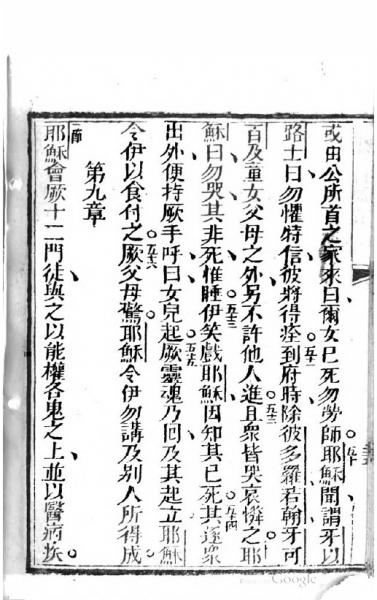 或由公所首之家來曰爾女已死勿勞師○五十耶穌聞謂牙以
路士曰勿懼特信彼將得痊○五一到府時除彼多羅若翰牙可
百及童女父母之外另不許他人進○五二且眾皆哭哀憐之耶
穌曰勿哭其非死惟睡○五三伊笑戲耶穌因知其已死○五四其逐眾
出外便持厥手呼曰女兒起○五五厥靈魂乃回及其起立耶穌
令伊以食付之○五六厥父母驚耶穌令伊勿講及别人所得成
第九章
一節耶穌會厥十二門徒與之以能權各鬼之上並以醫病
Google